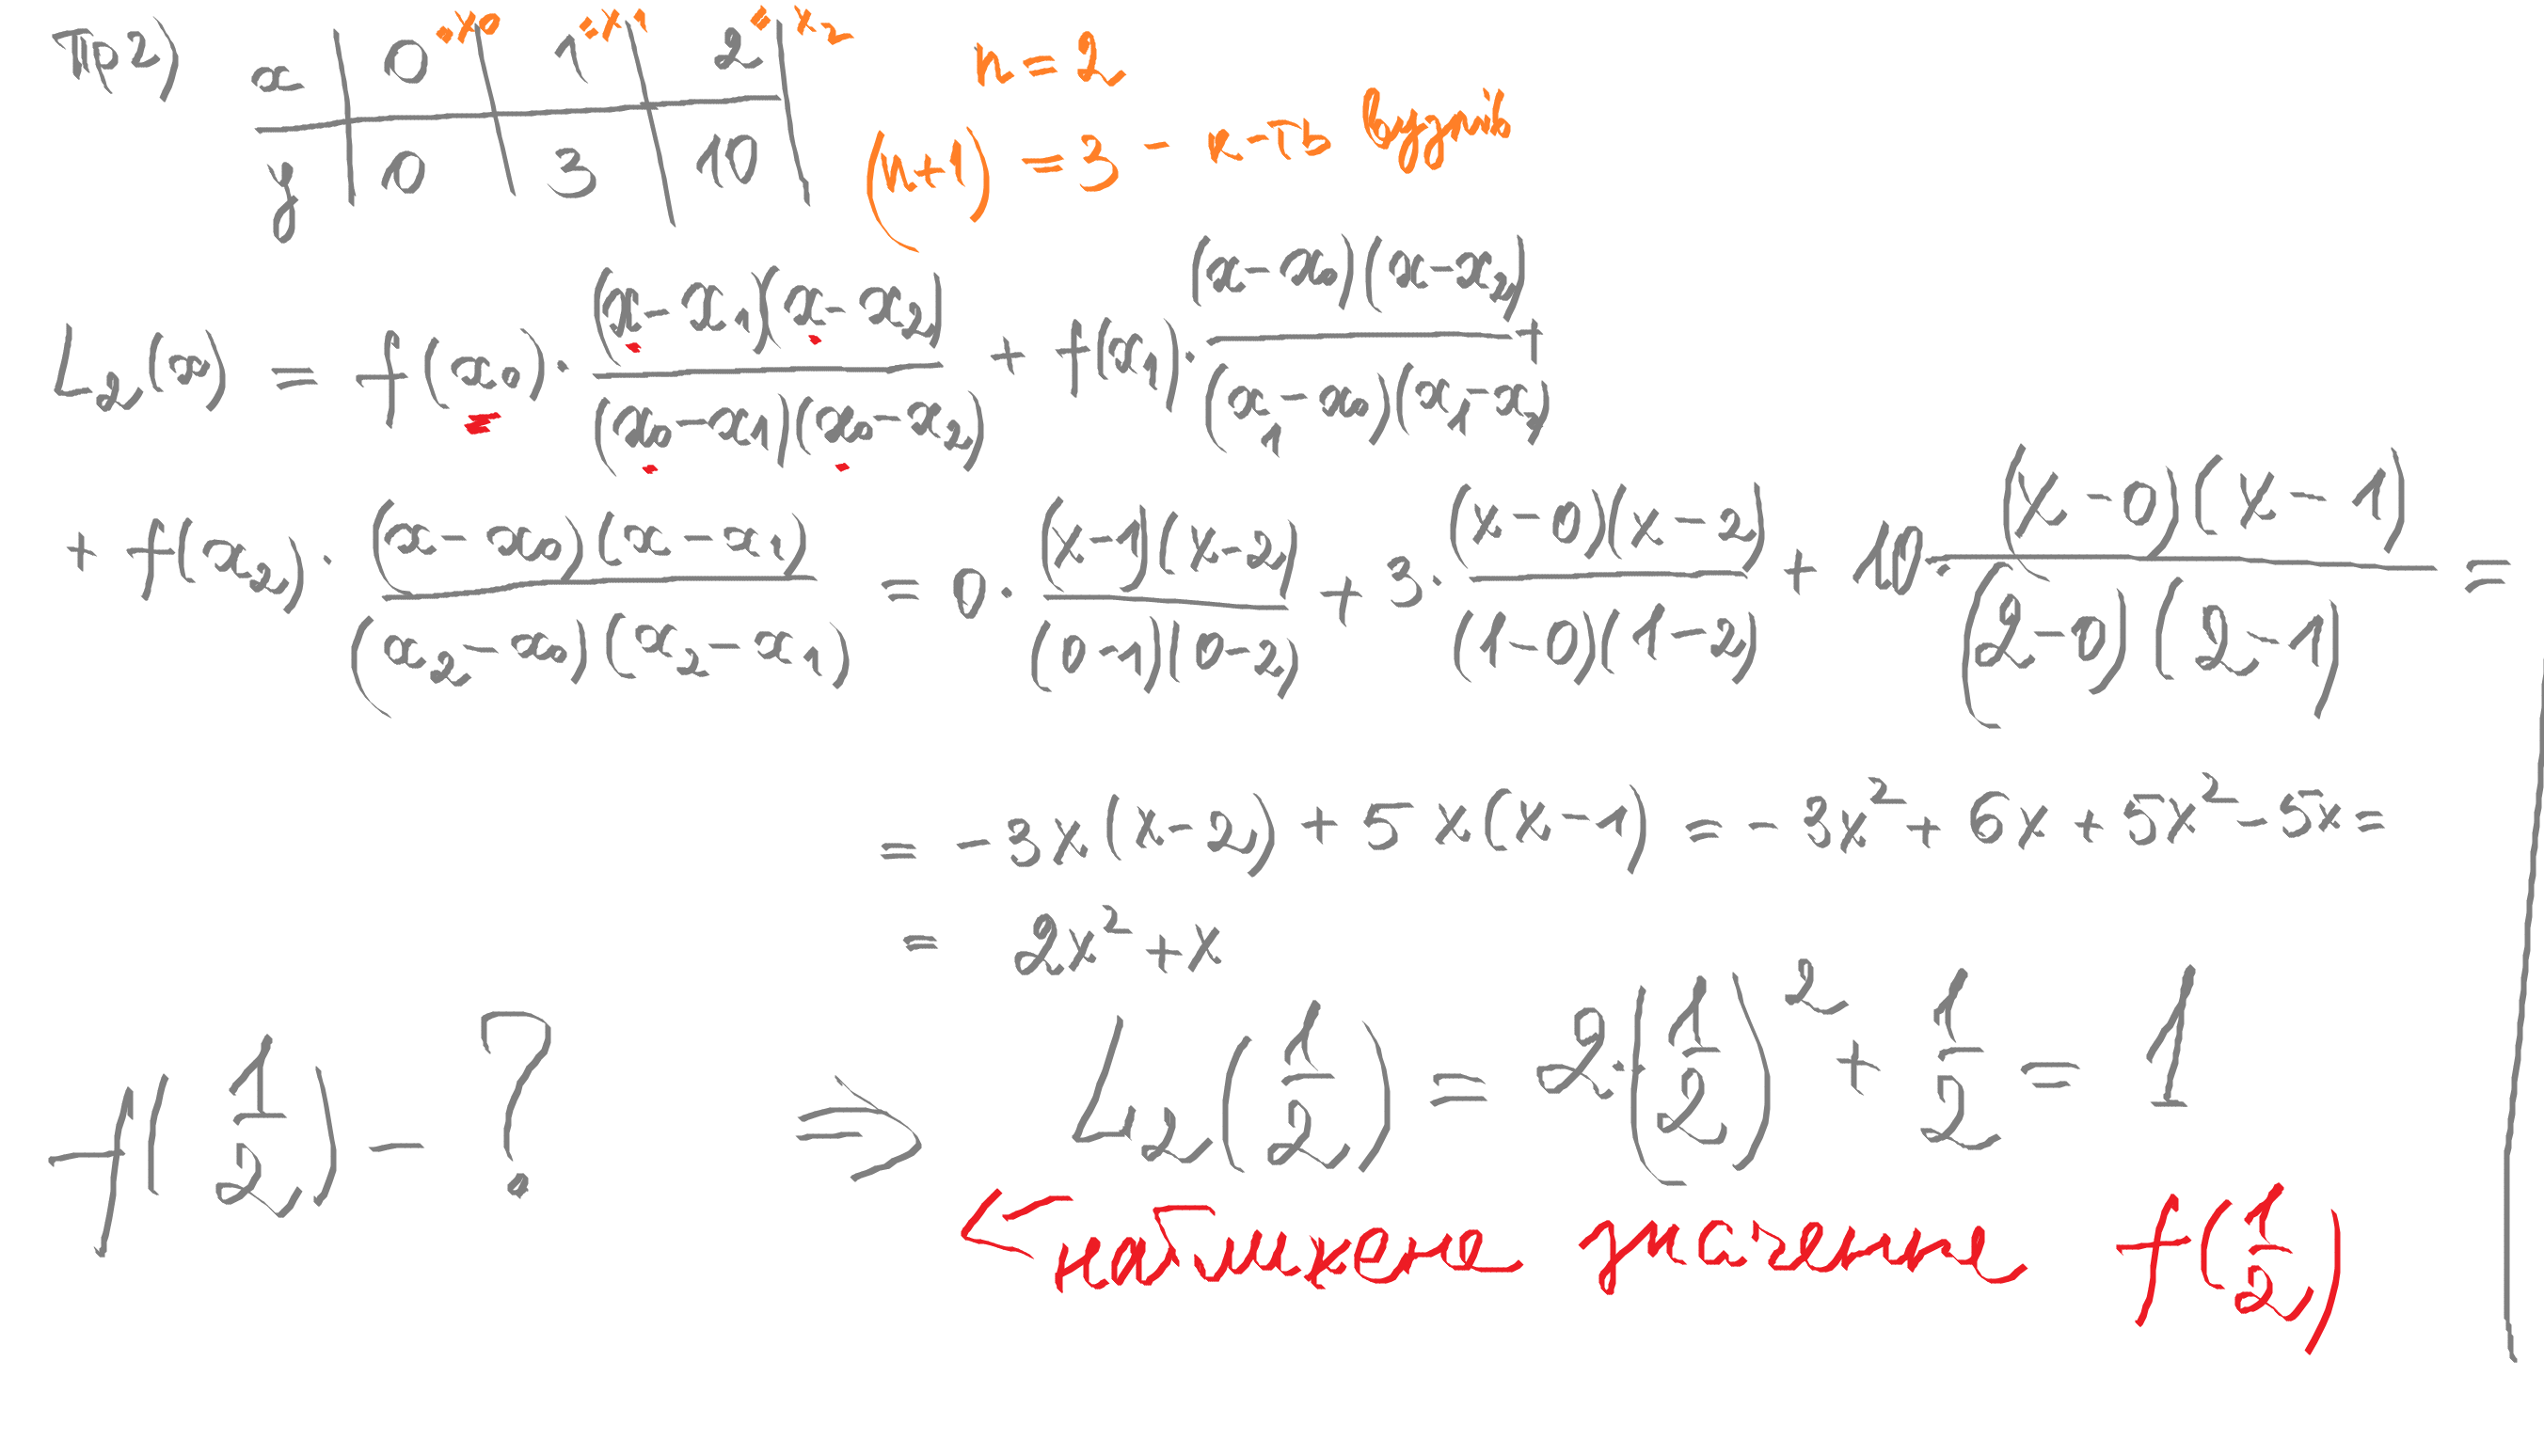 Пр2) x | 0 = x₀ | 1 = x₁ | 2 = x₂ n = 2
y | 0 | 3 | 10 (n+1) = 3 - к-ть вузлів
L₂(x) = f(x₀) · (x-x₁)(x-x₂) / (x₀-x₁)(x₀-x₂) + f(x₁) · (x-x₀)(x-x₂) / (x₁-x₀)(x₁-x₂) +
+ f(x₂) · (x-x₀)(x-x₁) / (x₂-x₀)(x₂-x₁) = 0 · (x-1)(x-2) / (0-1)(0-2) + 3 · (x-0)(x-2) / (1-0)(1-2) + 10 · (x-0)(x-1) / (2-0)(2-1) =
= -3x(x-2) + 5x(x-1) = -3x² + 6x + 5x² - 5x =
= 2x² + x
f(1/2) - ? ⇒ L₂(1/2) = 2·(1/2)² + 1/2 = 1
← наближене значення f(1/2)